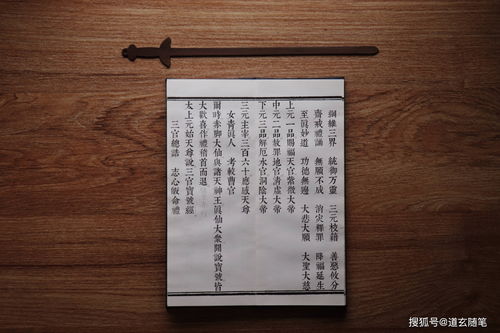 綱維三界　統御万靈　三元校籍　善惡攸分
齋戒禮誦　無願不成　消灾釋罪　降福延生
至真妙道　功德無邊　大悲大願　大聖大慈
上元一品賜福天官紫微大帝
中元二品赦罪地官清虛大帝
下元三品解厄水官洞陰大帝
三元主宰三百六十應感天尊
女青真人　考較曹官
爾時赤腳大仙與諸天神王真仙大衆聞說寶號皆
大歡喜作禮稽首而退
太上元始天尊說三官寶號經
三官總誥　志心皈命禮
搜狐号@道玄随笔